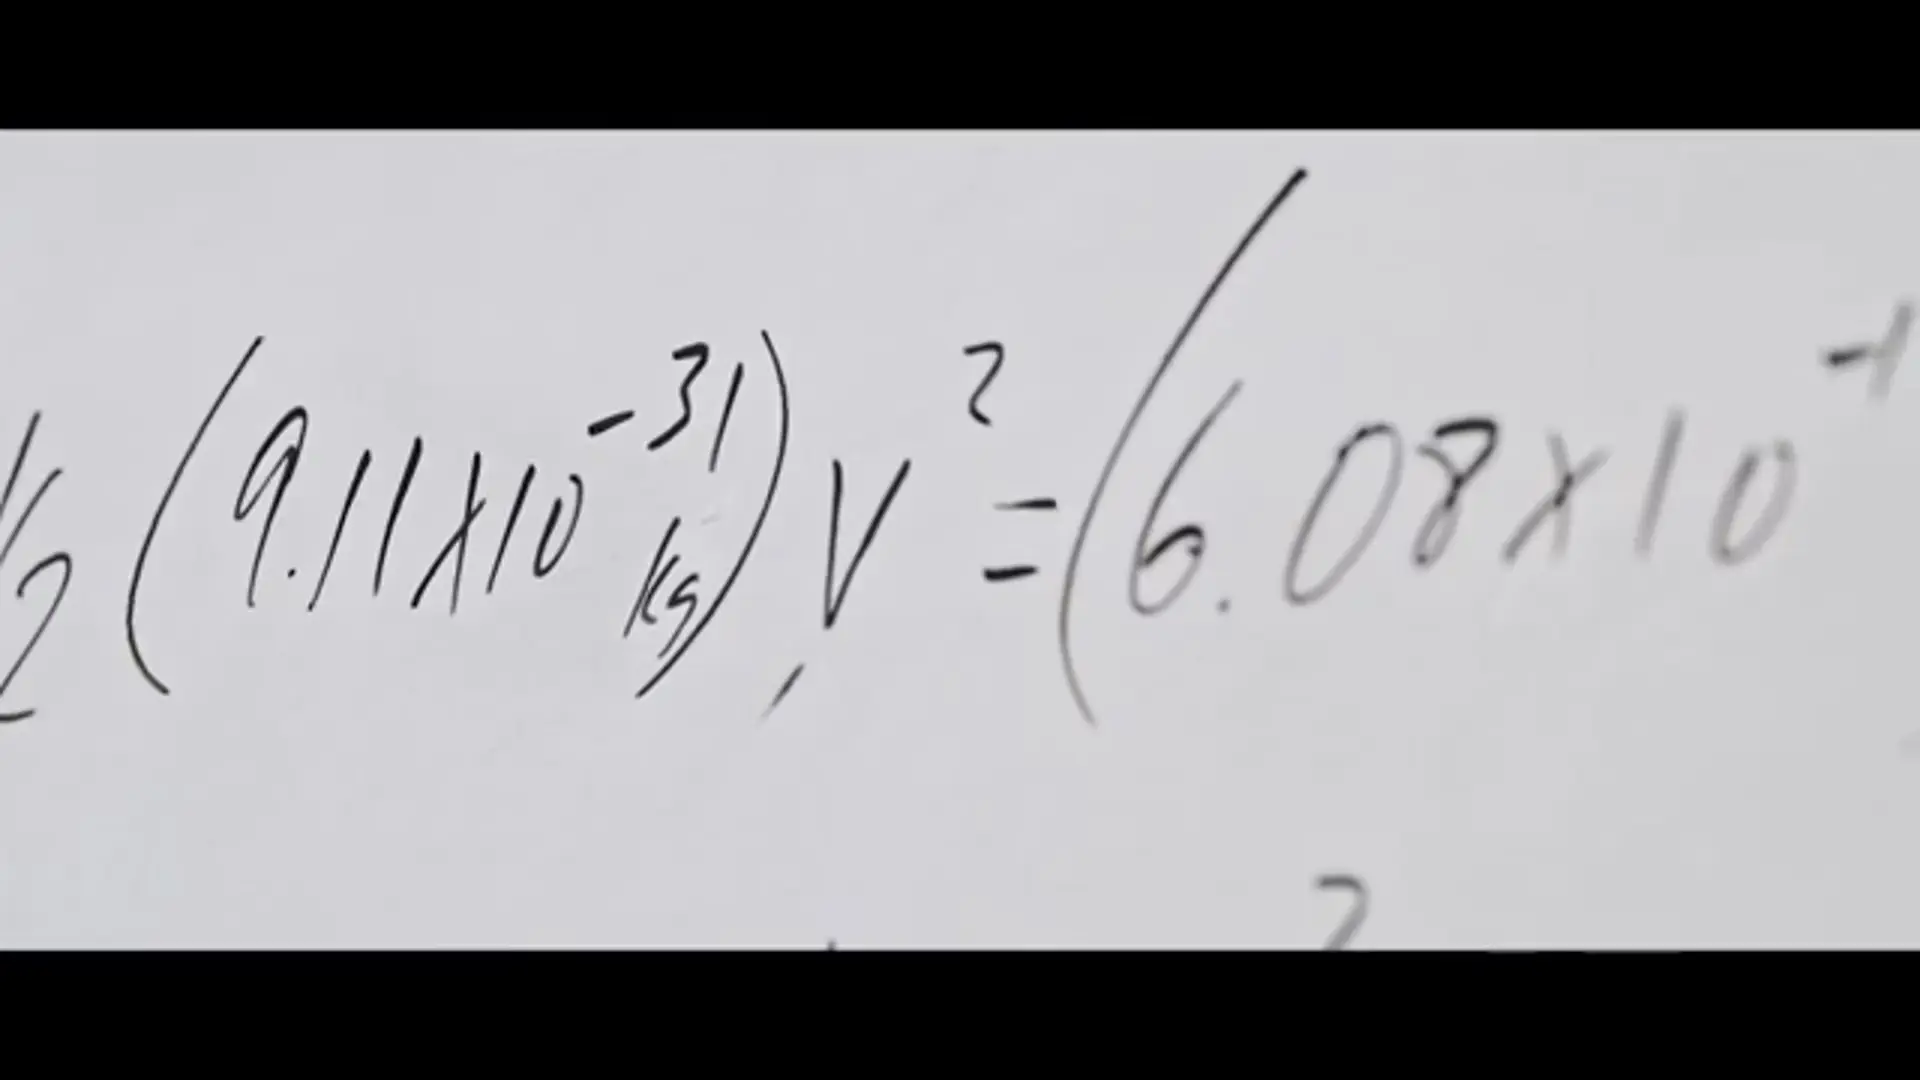 1/2 (9.11x10^-31 kg) V^2 = (6.08x10^-1
2